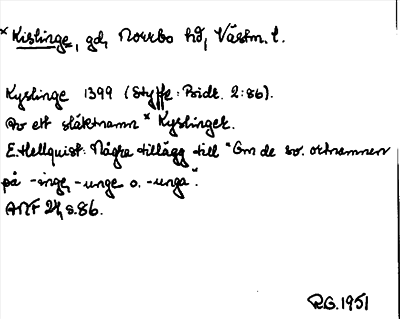 × Kislinge, gd, Norrbo hd, Västm. l.
Kyslinge 1399 (Styffe: Bidr. 2:86).
Av ett släktnamn × Kyslingar.
E. Hellquist: Några tillägg till "Om de sv. ortnamnen
på -inge, -unge o. -unga".
ANF 21, s. 86.
R.G. 1951